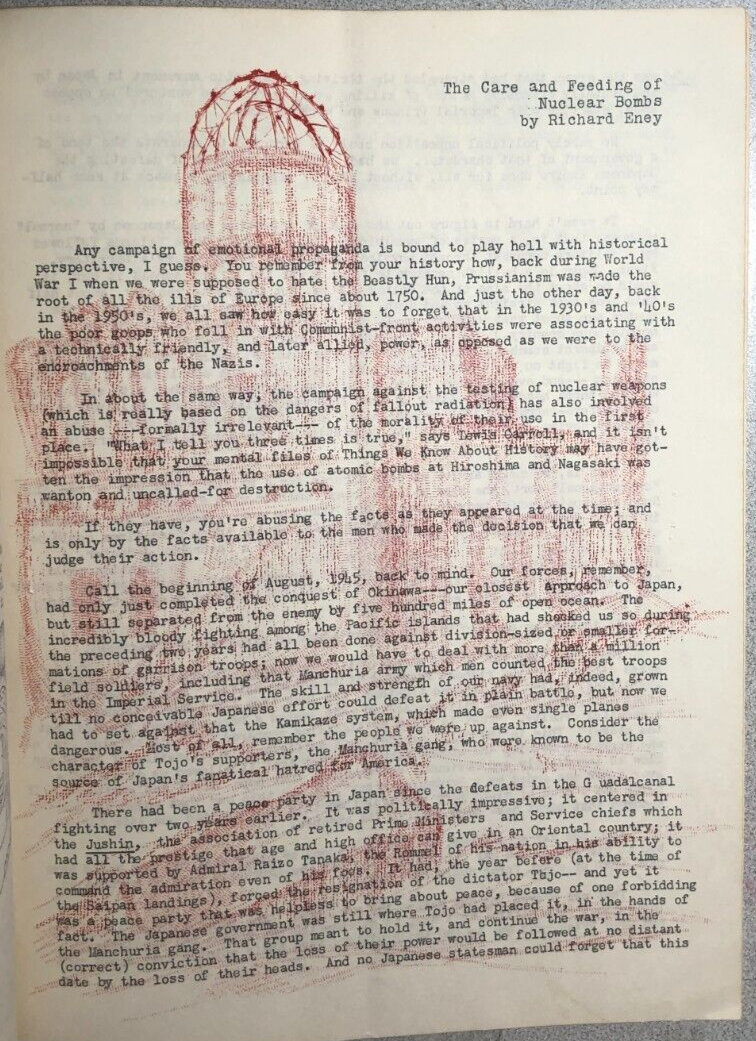 The Care and Feeding of
Nuclear Bombs
by Richard Eney
Any campaign of emotional propaganda is bound to play hell with historical
perspective, I guess. You remember from your history how, back during World
War I when we were supposed to hate the Beastly Hun, Prussianism was made the
root of all the ills of Europe since about 1750. And just the other day, back
in the 1950's, we all saw how easy it was to forget that in the 1930's and '40's
the poor goops who fell in with Communist-front activities were associating with
a technically friendly, and later allied, power, as opposed as we were to the
encroachments of the Nazis.
In about the same way, the campaign against the testing of nuclear weapons
(which is really based on the dangers of fallout radiation) has also involved
an abuse ---formally irrelevant--- of the morality of their use in the first
place. "What I tell you three times is true," says Lewis Carroll, and it isn't
impossible that your mental files of Things We Know About History may have got-
ten the impression that the use of atomic bombs at Hiroshima and Nagasaki was
wanton and uncalled-for destruction.
If they have, you're abusing the facts as they appeared at the time; and
is only by the facts available to the men who made the decision that we can
judge their action.
Call the beginning of August, 1945, back to mind. Our forces, remember,
had only just completed the conquest of Okinawa---our closest approach to Japan,
but still separated from the enemy by five hundred miles of open ocean. The
incredibly bloody fighting among the Pacific islands that had shocked us so during
the preceding two years had all been done against division-sized or smaller for-
mations of garrison troops; now we would have to deal with more than a million
field soldiers, including that Manchuria army which men counted the best troops
in the Imperial Service. The skill and strength of our navy had, indeed, grown
till no conceivable Japanese effort could defeat it in plain battle, but now we
had to set against that the Kamikaze system, which made even single planes
dangerous. Most of all, remember the people we were up against. Consider the
character of Tojo's supporters, the Manchuria gang, who were known to be the
source of Japan's fanatical hatred for America.
There had been a peace party in Japan since the defeats in the G uadalcanal
fighting over two years earlier. It was politically impressive; it centered in
the Jushin, the association of retired Prime Ministers and Service chiefs which
had all the prestige that age and high office can give in an Oriental country; it
was supported by Admiral Raizo Tanaka, the Rommel of his nation in his ability to
command the admiration even of his foes. It had, the year before (at the time of
the Saipan landings), forced the resignation of the dictator Tojo-- and yet it
was a peace party that was helpless to bring about peace, because of one forbidding
fact. The Japanese government was still where Tojo had placed it, in the hands of
the Manchuria gang. That group meant to hold it, and continue the war, in the
(correct) conviction that the loss of their power would be followed at no distant
date by the loss of their heads. And no Japanese statesman could forget that this